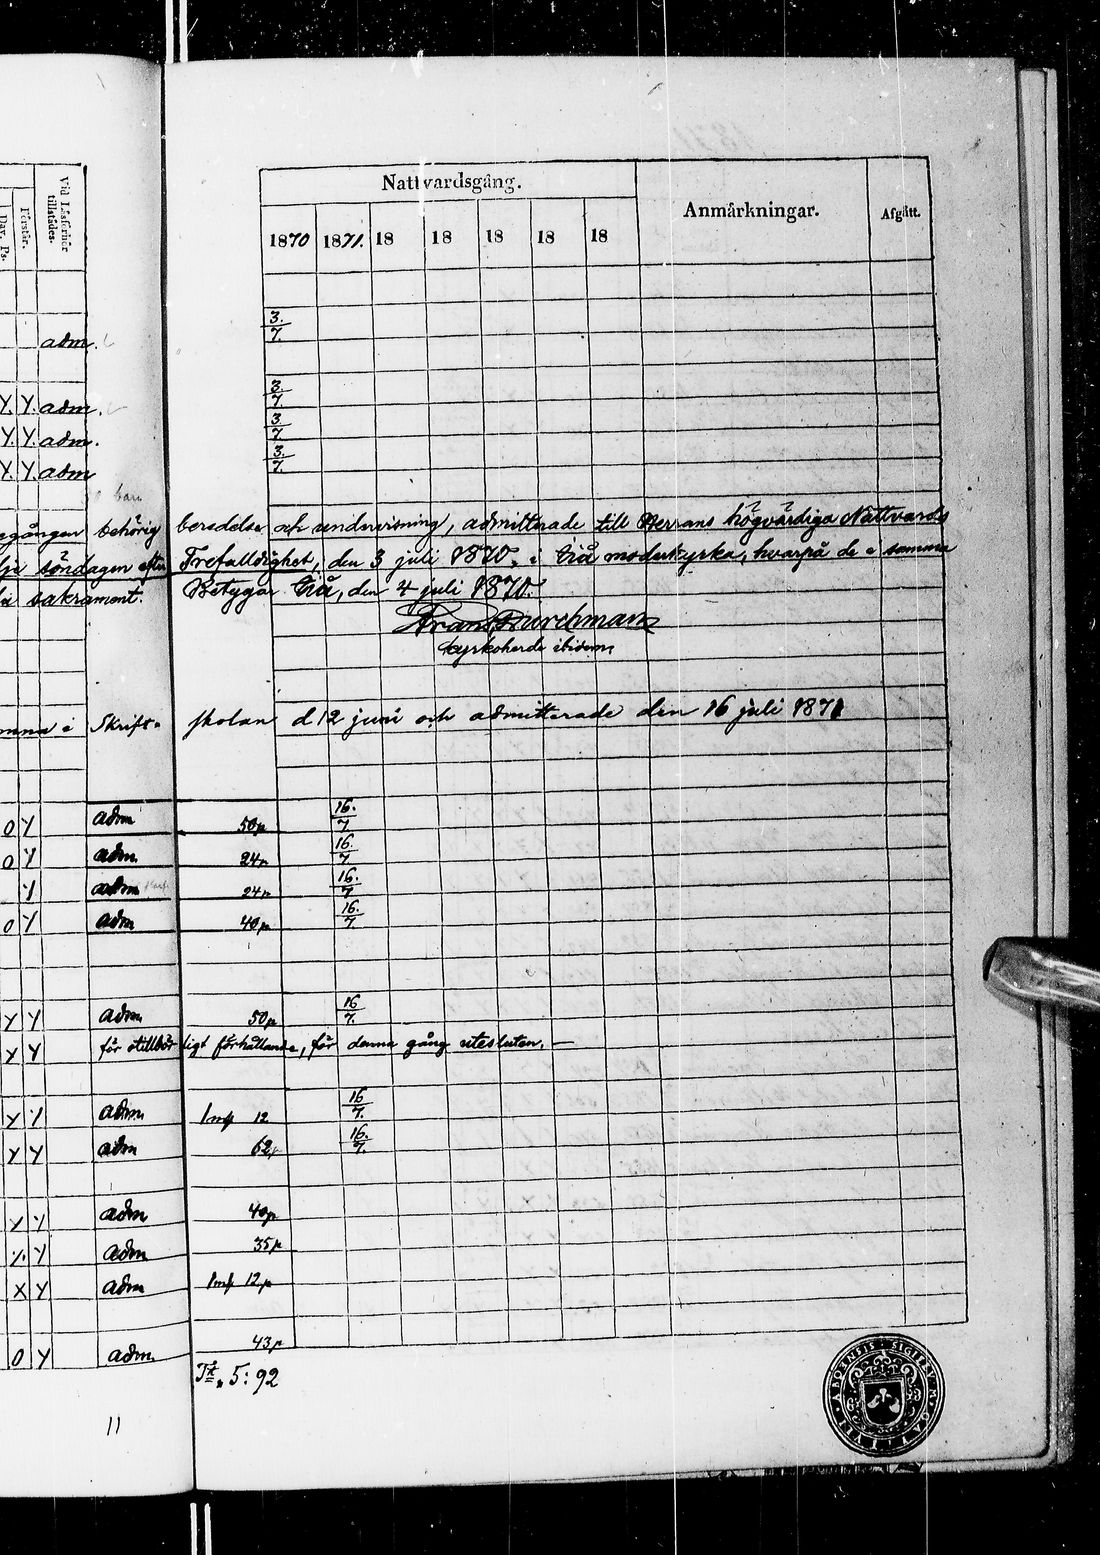 Vid Läsförhör tillstädes.
Förstår.
Dav. Ps.
Nattvardsgång.
Anmärkningar.
Afgått.
1870 1871. 18 18 18 18 18
3.
7.
adm.
3.
7.
Y. Y. adm.
3.
7.
Y. Y. adm.
3.
7.
Y. Y. adm
egången behörig beredelse och undervisning, admitterade till Herrans högvärdiga Nattvard
söndagen efter Trefaldighet, den 3 juli 1870. i moderkyrka, hvarpå de samma
sakrament. Betygar den 4 juli 1870.
Frans Durchman
Kyrkoherde ibidem
i Skrift- skolan d 12 juni och admitterade den 16 juli 1871
O Y adm 50p 16.
7.
O Y adm 24p 16.
7.
Y adm 24p 16.
7
O Y adm 40p 16.
7.
Y Y adm 50p 16
7.
Y Y för otillbörligt förhållande, för denna gång utesluten. —
Y Y adm 1mk 12 16
7.
Y Y adm 62p 16.
7.
Y Y adm 40p
Y adm 35p
X Y adm 1mk 12p
O Y adm. 43p
5:92
11